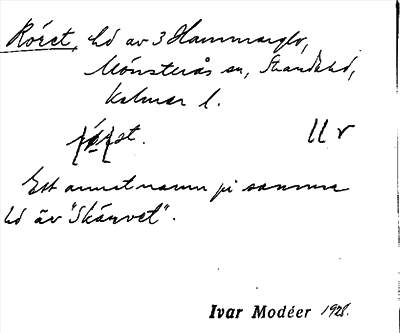 Róret, hd av 3 Hammarglo,
Mönsterås sn, Stranda hd,
Kalmar l.
Ett annat namn på samma
hd är "Skärvet".
Ivar Modéer 1928.